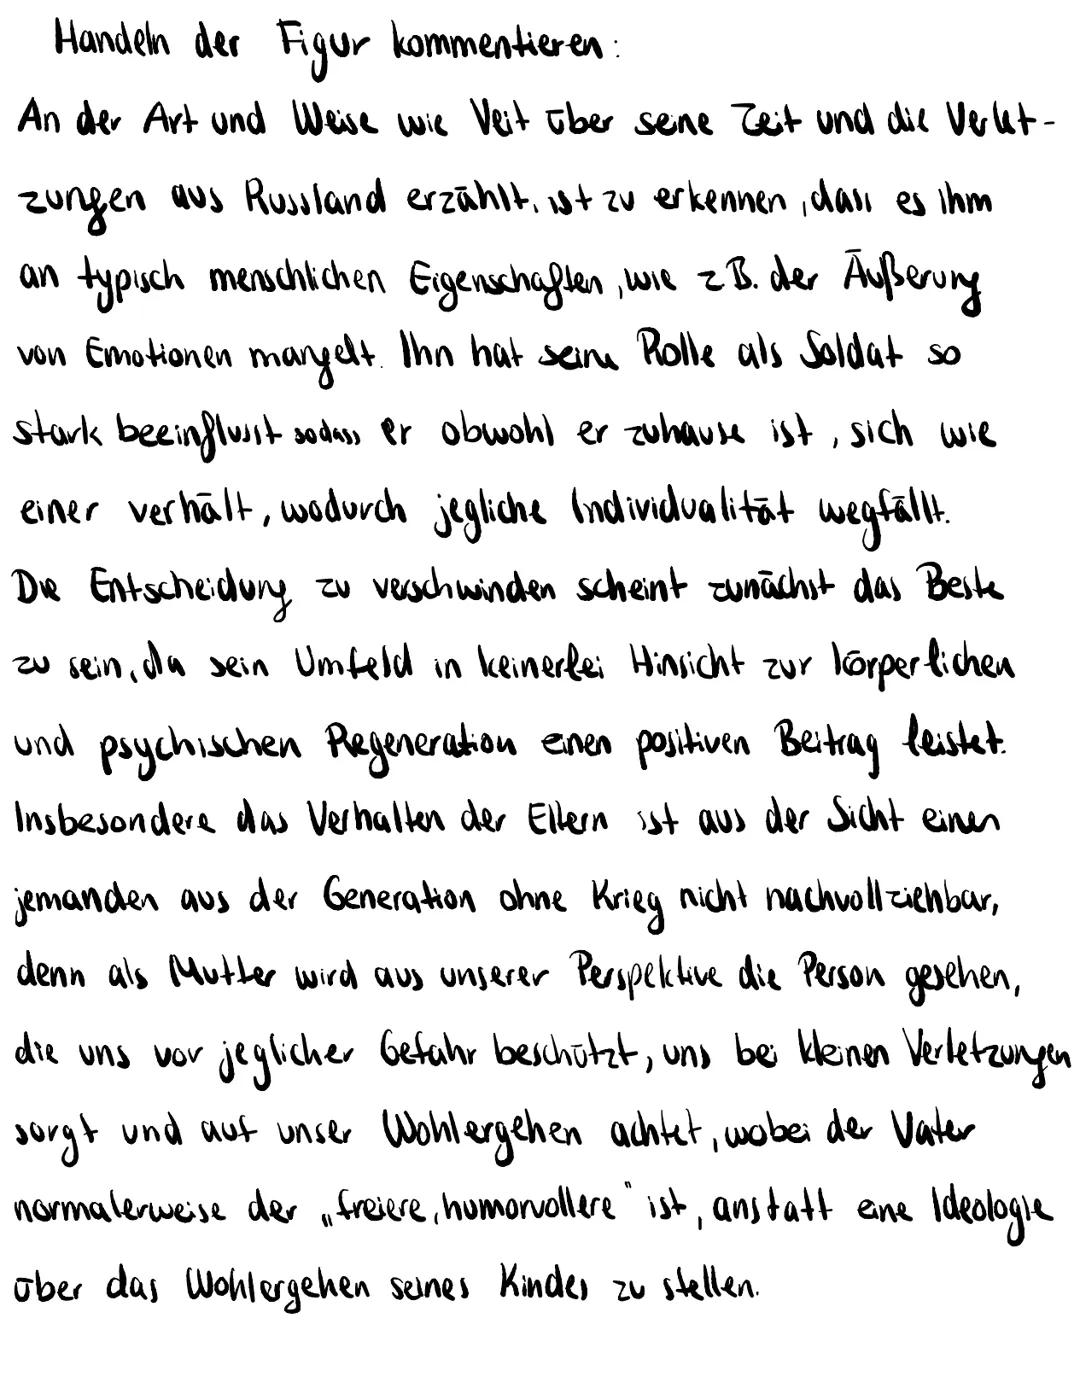 Handeln der Figur kommentieren:
An der Art und Weise wie Veit über seine Zeit und die Verlet-
zungen aus Russland erzählt, ist zu erkennen, dass es ihm
an typisch menschlichen Eigenschaften, wie z.B. der Äußerung
von Emotionen mangelt. Ihn hat seine Rolle als Soldat so
stark beeinflusst sodass er obwohl er zuhause ist, sich wie
einer verhält, wodurch jegliche Individualität wegfällt.
Die Entscheidung zu verschwinden scheint zunächst das Beste
zu sein, da sein Umfeld in keinerlei Hinsicht zur körperlichen
und psychischen Regeneration einen positiven Beitrag leistet.
Insbesondere das Verhalten der Eltern ist aus der Sicht einen
jemanden aus der Generation ohne Krieg nicht nachvollziehbar,
denn als Mutter wird aus unserer Perspektive die Person gesehen,
die uns vor jeglicher Gefahr beschützt, uns bei kleinen Verletzungen
sorgt und auf unser Wohlergehen achtet, wobei der Vater
normalerweise der „freiere, humorvollere" ist, anstatt eine Ideologie
über das Wohlergehen seines Kindes zu stellen.